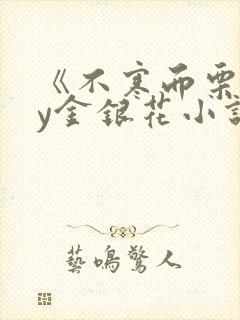 《不寒而栗
y金银花小说
藝鳴驚人